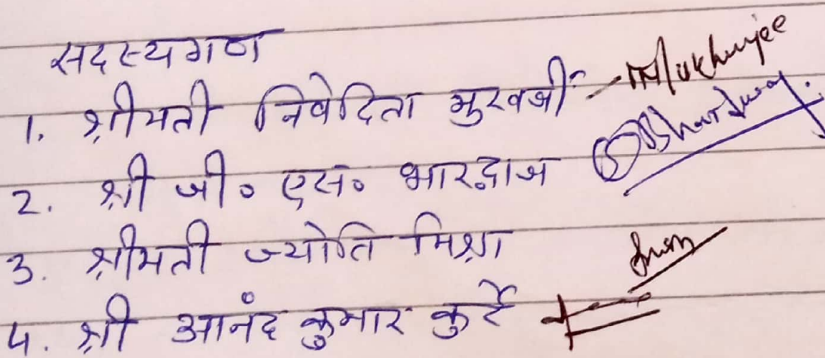 सदस्यगण
1. श्रीमती निवेदिता मुखर्जी - Mukherjee
2. श्री जी० एस० भारद्वाज Bhardwaj
3. श्रीमती ज्योति मिश्रा
4. श्री आनंद कुमार कुर्रे